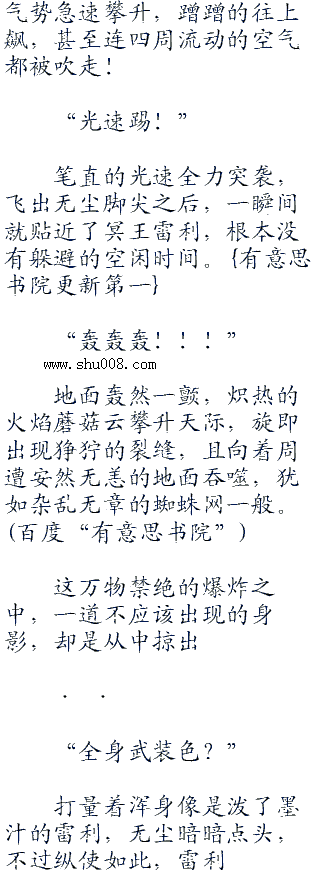 气势急速攀升，蹭蹭的往上
飙，甚至连四周流动的空气
都被吹走！
“光速踢！”
笔直的光速全力突袭，
飞出无尘脚尖之后，一瞬间
就贴近了冥王雷利，根本没
有躲避的空闲时间。{有意思
书院更新第一}
“轰轰轰！！！”
www.shu008.com
地面轰然一颤，炽热的
火焰蘑菇云攀升天际，旋即
出现狰狞的裂缝，且向着周
遭安然无恙的地面吞噬，犹
如杂乱无章的蜘蛛网一般。
(百度“有意思书院”)
这万物禁绝的爆炸之
中，一道不应该出现的身
影，却是从中掠出
．．
“全身武装色？”
打量着浑身像是泼了墨
汁的雷利，无尘暗暗点头，
不过纵使如此，雷利